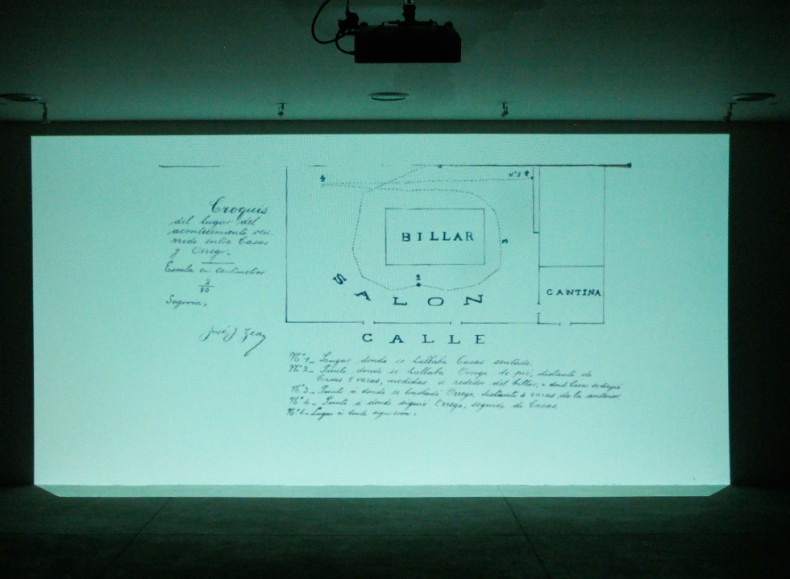 Croquis
del lugar del
acontecimiento ocu-
rrido entre Casas
y Orrego.
Escala en centímetros
Segovia.
4
Nº 5
BILLAR
3
2
SALON
CANTINA
CALLE
Nº 1_ Lugar donde se hallaba Casas sentado.
Nº 2_ Punto donde se hallaba Orrego de pié, distante de
Casas varas, medidas al rededor del billar,
Nº 3_ Punto a donde se trasladó Orrego, distante 6 varas de la anterior
Nº 4_ Punto a donde siguió Orrego, seguido de Casas
Lugar a donde